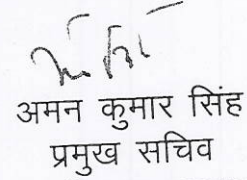 अमन कुमार सिंह
प्रमुख सचिव